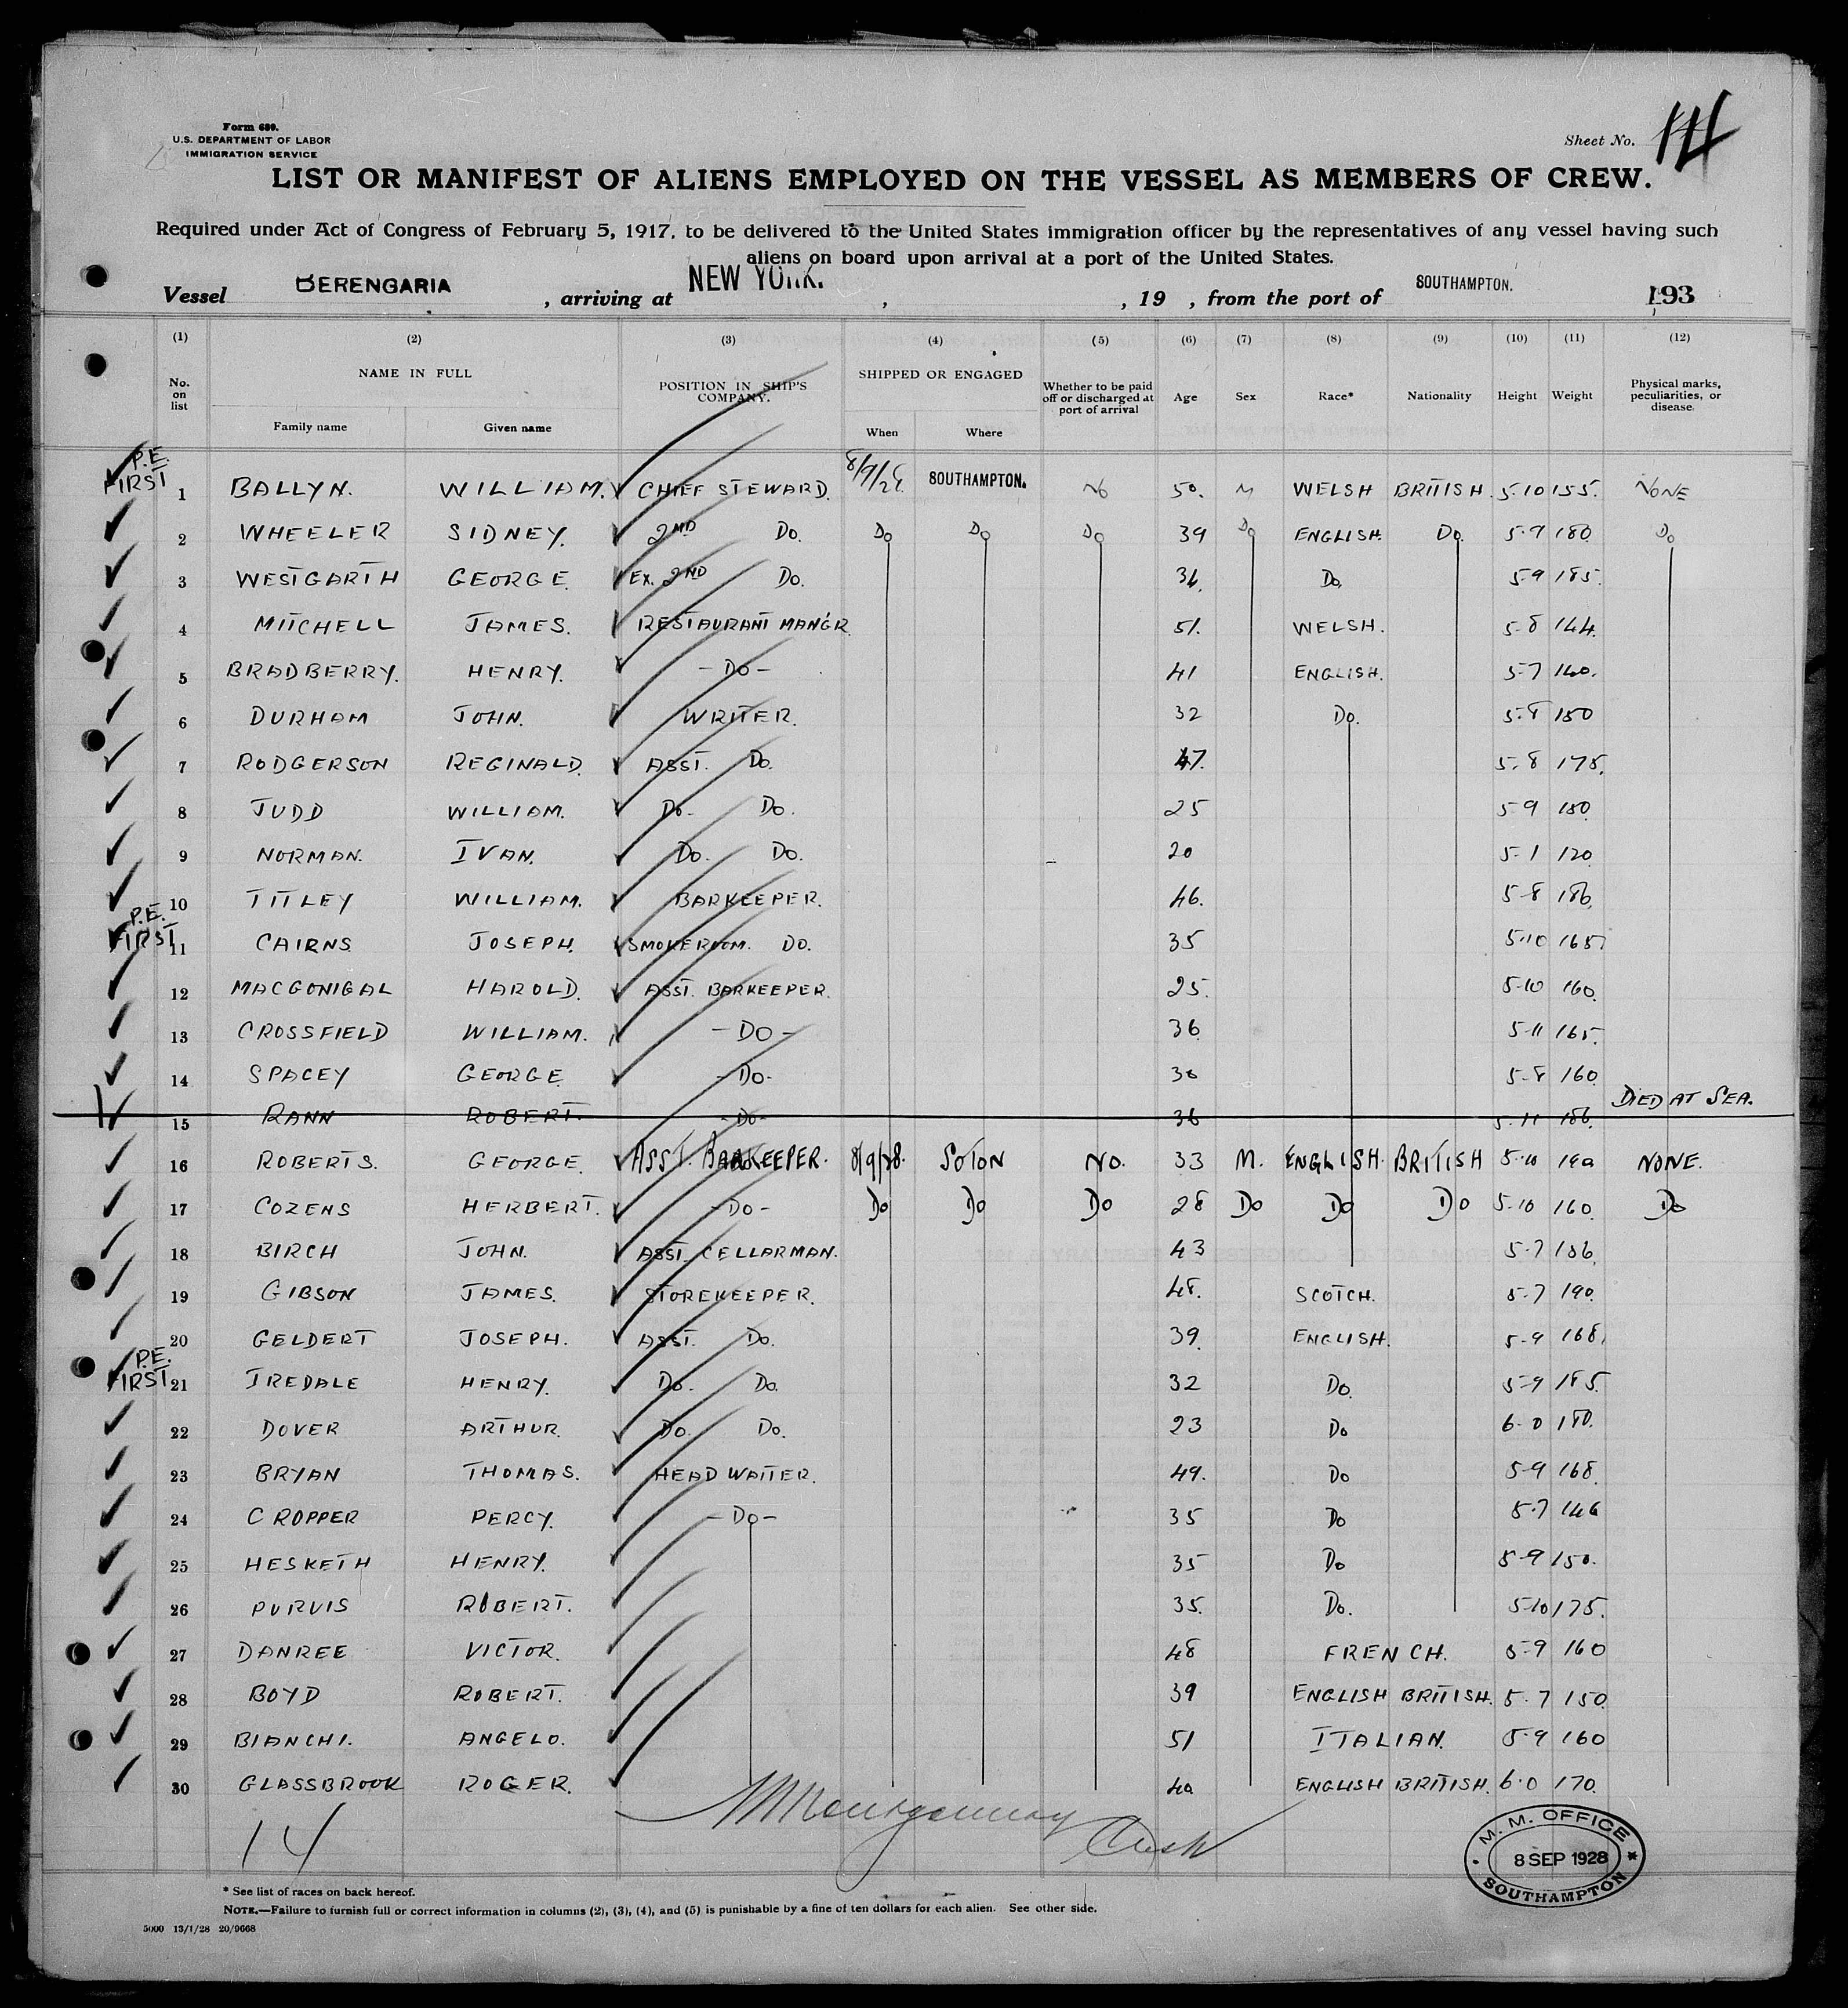 Form 680.
U.S. DEPARTMENT OF LABOR
IMMIGRATION SERVICE
Sheet No. 14
LIST OR MANIFEST OF ALIENS EMPLOYED ON THE VESSEL AS MEMBERS OF CREW.
Required under Act of Congress of February 5, 1917, to be delivered to the United States immigration officer by the representatives of any vessel having such
aliens on board upon arrival at a port of the United States.
Vessel BERENGARIA , arriving at NEW YORK. , , 19 , from the port of SOUTHAMPTON. 193
(1) (2) (3) (4) (5) (6) (7) (8) (9) (10) (11) (12)
No. on list NAME IN FULL POSITION IN SHIP'S COMPANY. SHIPPED OR ENGAGED Whether to be paid off or discharged at port of arrival Age Sex Race* Nationality Height Weight Physical marks, peculiarities, or disease.
Family name Given name When Where
P.E. FIRST 1 BALLYN. WILLIAM. CHIEF STEWARD. 8/9/28 SOUTHAMPTON. NO 50. M WELSH BRITISH. 5-10 155. NONE
2 WHEELER SIDNEY. 2ND Do. Do Do Do 39 Do ENGLISH. Do. 5-9 180. Do
3 WESTGARTH GEORGE. EX. 2ND Do. Do. 5-9 185.
4 MITCHELL JAMES. RESTAURANT MANGR. 51. WELSH. 5-8 144.
5 BRADBERRY. HENRY. - Do - 41 ENGLISH. 5-7 140.
6 DURHAM JOHN. WRITER. 32 Do. 5-8 150
7 RODGERSON REGINALD. ASST. Do. 47. 5-8 175.
8 JUDD WILLIAM. Do. Do. 25 5-9 150
9 NORMAN. IVAN. Do. Do. 20 5-1 120
10 TITLEY WILLIAM. BARKEEPER. 46. 5-8 186.
P.E. FIRST 11 CAIRNS JOSEPH. SMOKEROOM. DO. 35 5-10 165
12 MACGONIGAL HAROLD. ASST. BARKEEPER. 25. 5-10 160.
13 CROSSFIELD WILLIAM. - DO - 36 5-11 165.
14 SPACEY GEORGE - Do - 30 5-8 160
15 RANN ROBERT. - Do - 36 5-11 186. DIED AT SEA.
16 ROBERTS. GEORGE. ASST. BARKEEPER. 8/9/28. SOTON NO. 33 M. ENGLISH. BRITISH 5-10 NONE.
17 COZENS HERBERT. - Do - Do Do Do 28 Do Do Do 5-10 160. Do
18 BIRCH JOHN. ASST. CELLARMAN. 43 5-7 186.
19 GIBSON JAMES. STOREKEEPER. 48. SCOTCH. 5-7 190.
20 GELDERT JOSEPH. ASST. Do. 39. ENGLISH. 5-9 168.
P.E. FIRST 21 IREDALE HENRY. Do. Do. 32 Do. 5-9 185.
22 DOVER ARTHUR. Do. Do. 23 Do 6-0 180.
23 BRYAN THOMAS. HEAD WAITER. 49. Do 5-9 168.
24 CROPPER PERCY. - Do - 35 Do 5-7 146
25 HESKETH HENRY. 35 Do 5-9 150.
26 PURVIS ROBERT. 35. Do. 5-10 175.
27 DANREE VICTOR. 48 FRENCH. 5-9 160
28 BOYD ROBERT. 39 ENGLISH BRITISH. 5-7 150
29 BIANCHI. ANGELO. 51 ITALIAN. 5-9 160
30 GLASSBROOK ROGER. 40 ENGLISH BRITISH. 6-0 170.
14
Montgomery
M. M. OFFICE
8 SEP 1928
SOUTHAMPTON
* See list of races on back hereof.
NOTE.—Failure to furnish full or correct information in columns (2), (3), (4), and (5) is punishable by a fine of ten dollars for each alien. See other side.
5000 13/1/28 20/9668